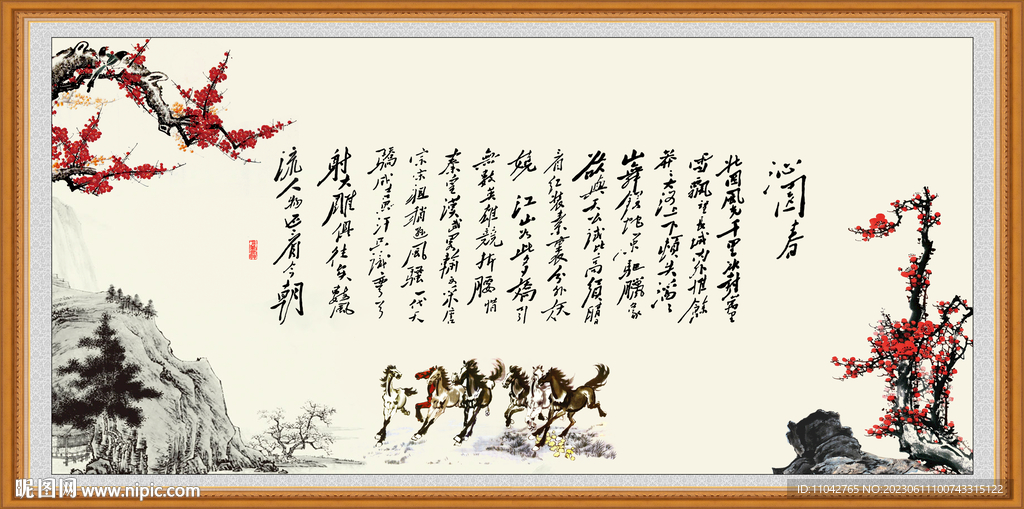 沁园春
北国风光千里冰封万里
雪飘望长城内外惟餘
莽莽大河上下顿失滔滔
山舞银蛇原驰臘象
欲與天公试比高须晴日
看红装素裹分外妖
娆江山如此多娇引
無数英雄競折腰惜
秦皇汉武略输文采唐
宗宋祖稍逊风骚一代天
骄成吉思汗只识弯弓
射大雕俱往矣数风
流人物还看今朝
昵图网 www.nipic.com
ID:11042765 NO:20230611100743315122